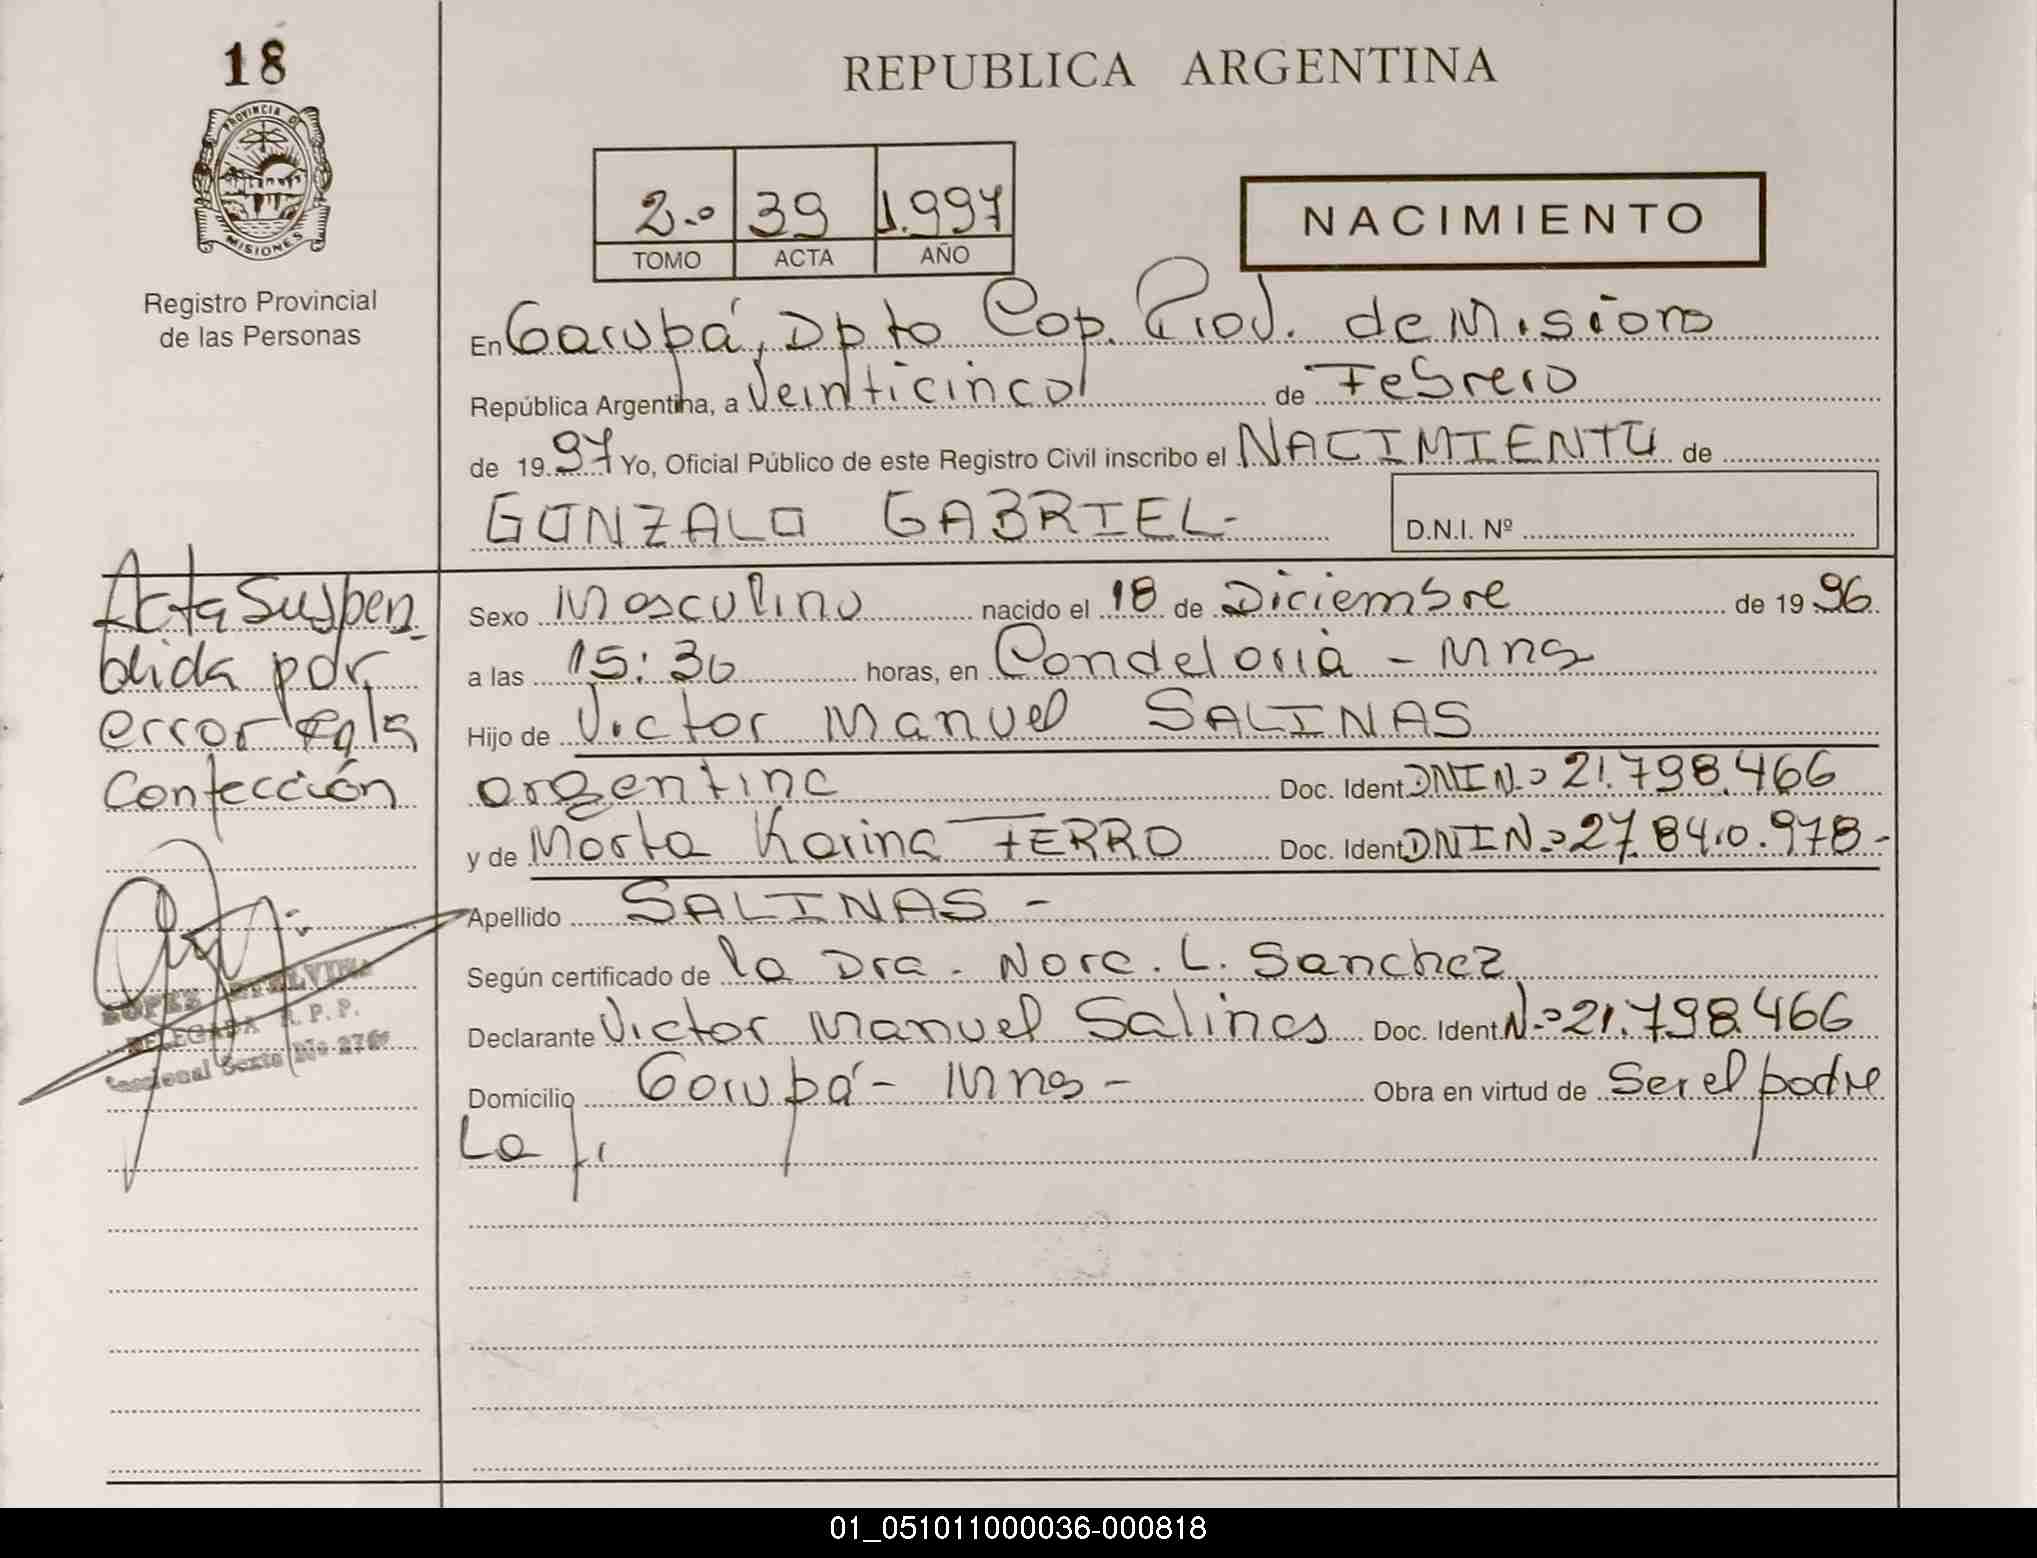 18
PROVINCIA DE
MISIONES
Registro Provincial
de las Personas
REPUBLICA ARGENTINA
2.º 39 1.997
TOMO ACTA AÑO
NACIMIENTO
En Garupá, Dpto Cap. Prov. de Misions
República Argentina, a Veinticinco de Febrero
de 19 97 Yo, Oficial Público de este Registro Civil inscribo el NACIMIENTO de
GONZALO GABRIEL-
D.N.I. Nº
Sexo Masculino nacido el 18 de Diciembre de 19 96
a las 15:30 horas, en Candelaria - Mns
Hijo de Victor Manuel SALINAS
argentino Doc. Ident DNI N.º 21.798.466
y de Marta Karina FERRO Doc. Ident DNI N.º 27.840.978-
Apellido SALINAS -
Según certificado de la Dra. Nora. L. Sanchez
Declarante Victor Manuel Salinas Doc. Ident. N.º 21.798.466
Domicilio Garupá - Mns - Obra en virtud de Ser el padre
La
Acta Suspen
dida por
error en la
Confección
LOPEZ ETELVINA
DELEGADA R. P. P.
Seccional Sexta Nº
01_051011000036-000818